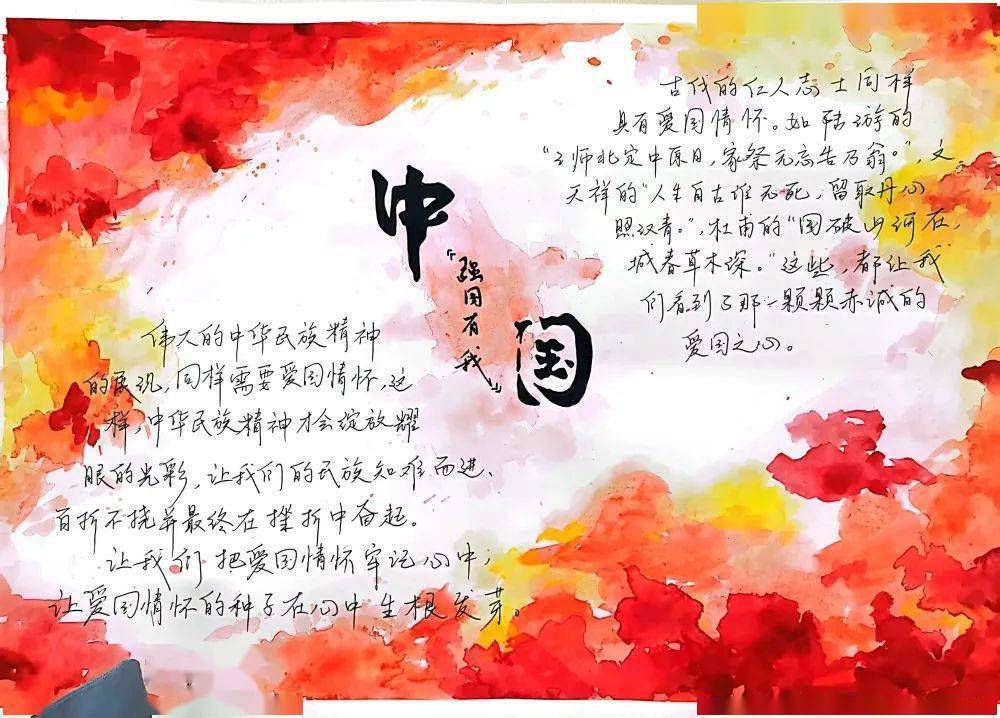 中
国
“强国有我”
古代的仁人志士同样
具有爱国情怀。如陆游的
“王师北定中原日，家祭无忘告乃翁。”，文
天祥的“人生自古谁无死，留取丹心
照汉青。”，杜甫的“国破山河在，
城春草木深。”这些，都让我
们看到了那一颗颗赤诚的
爱国之心。
伟大的中华民族精神
的展现，同样需要爱国情怀，这
样，中华民族精神才会绽放耀
眼的光彩，让我们的民族知难而进、
百折不挠并最终在挫折中奋起。
让我们把爱国情怀牢记心中；
让爱国情怀的种子在心中生根发芽。